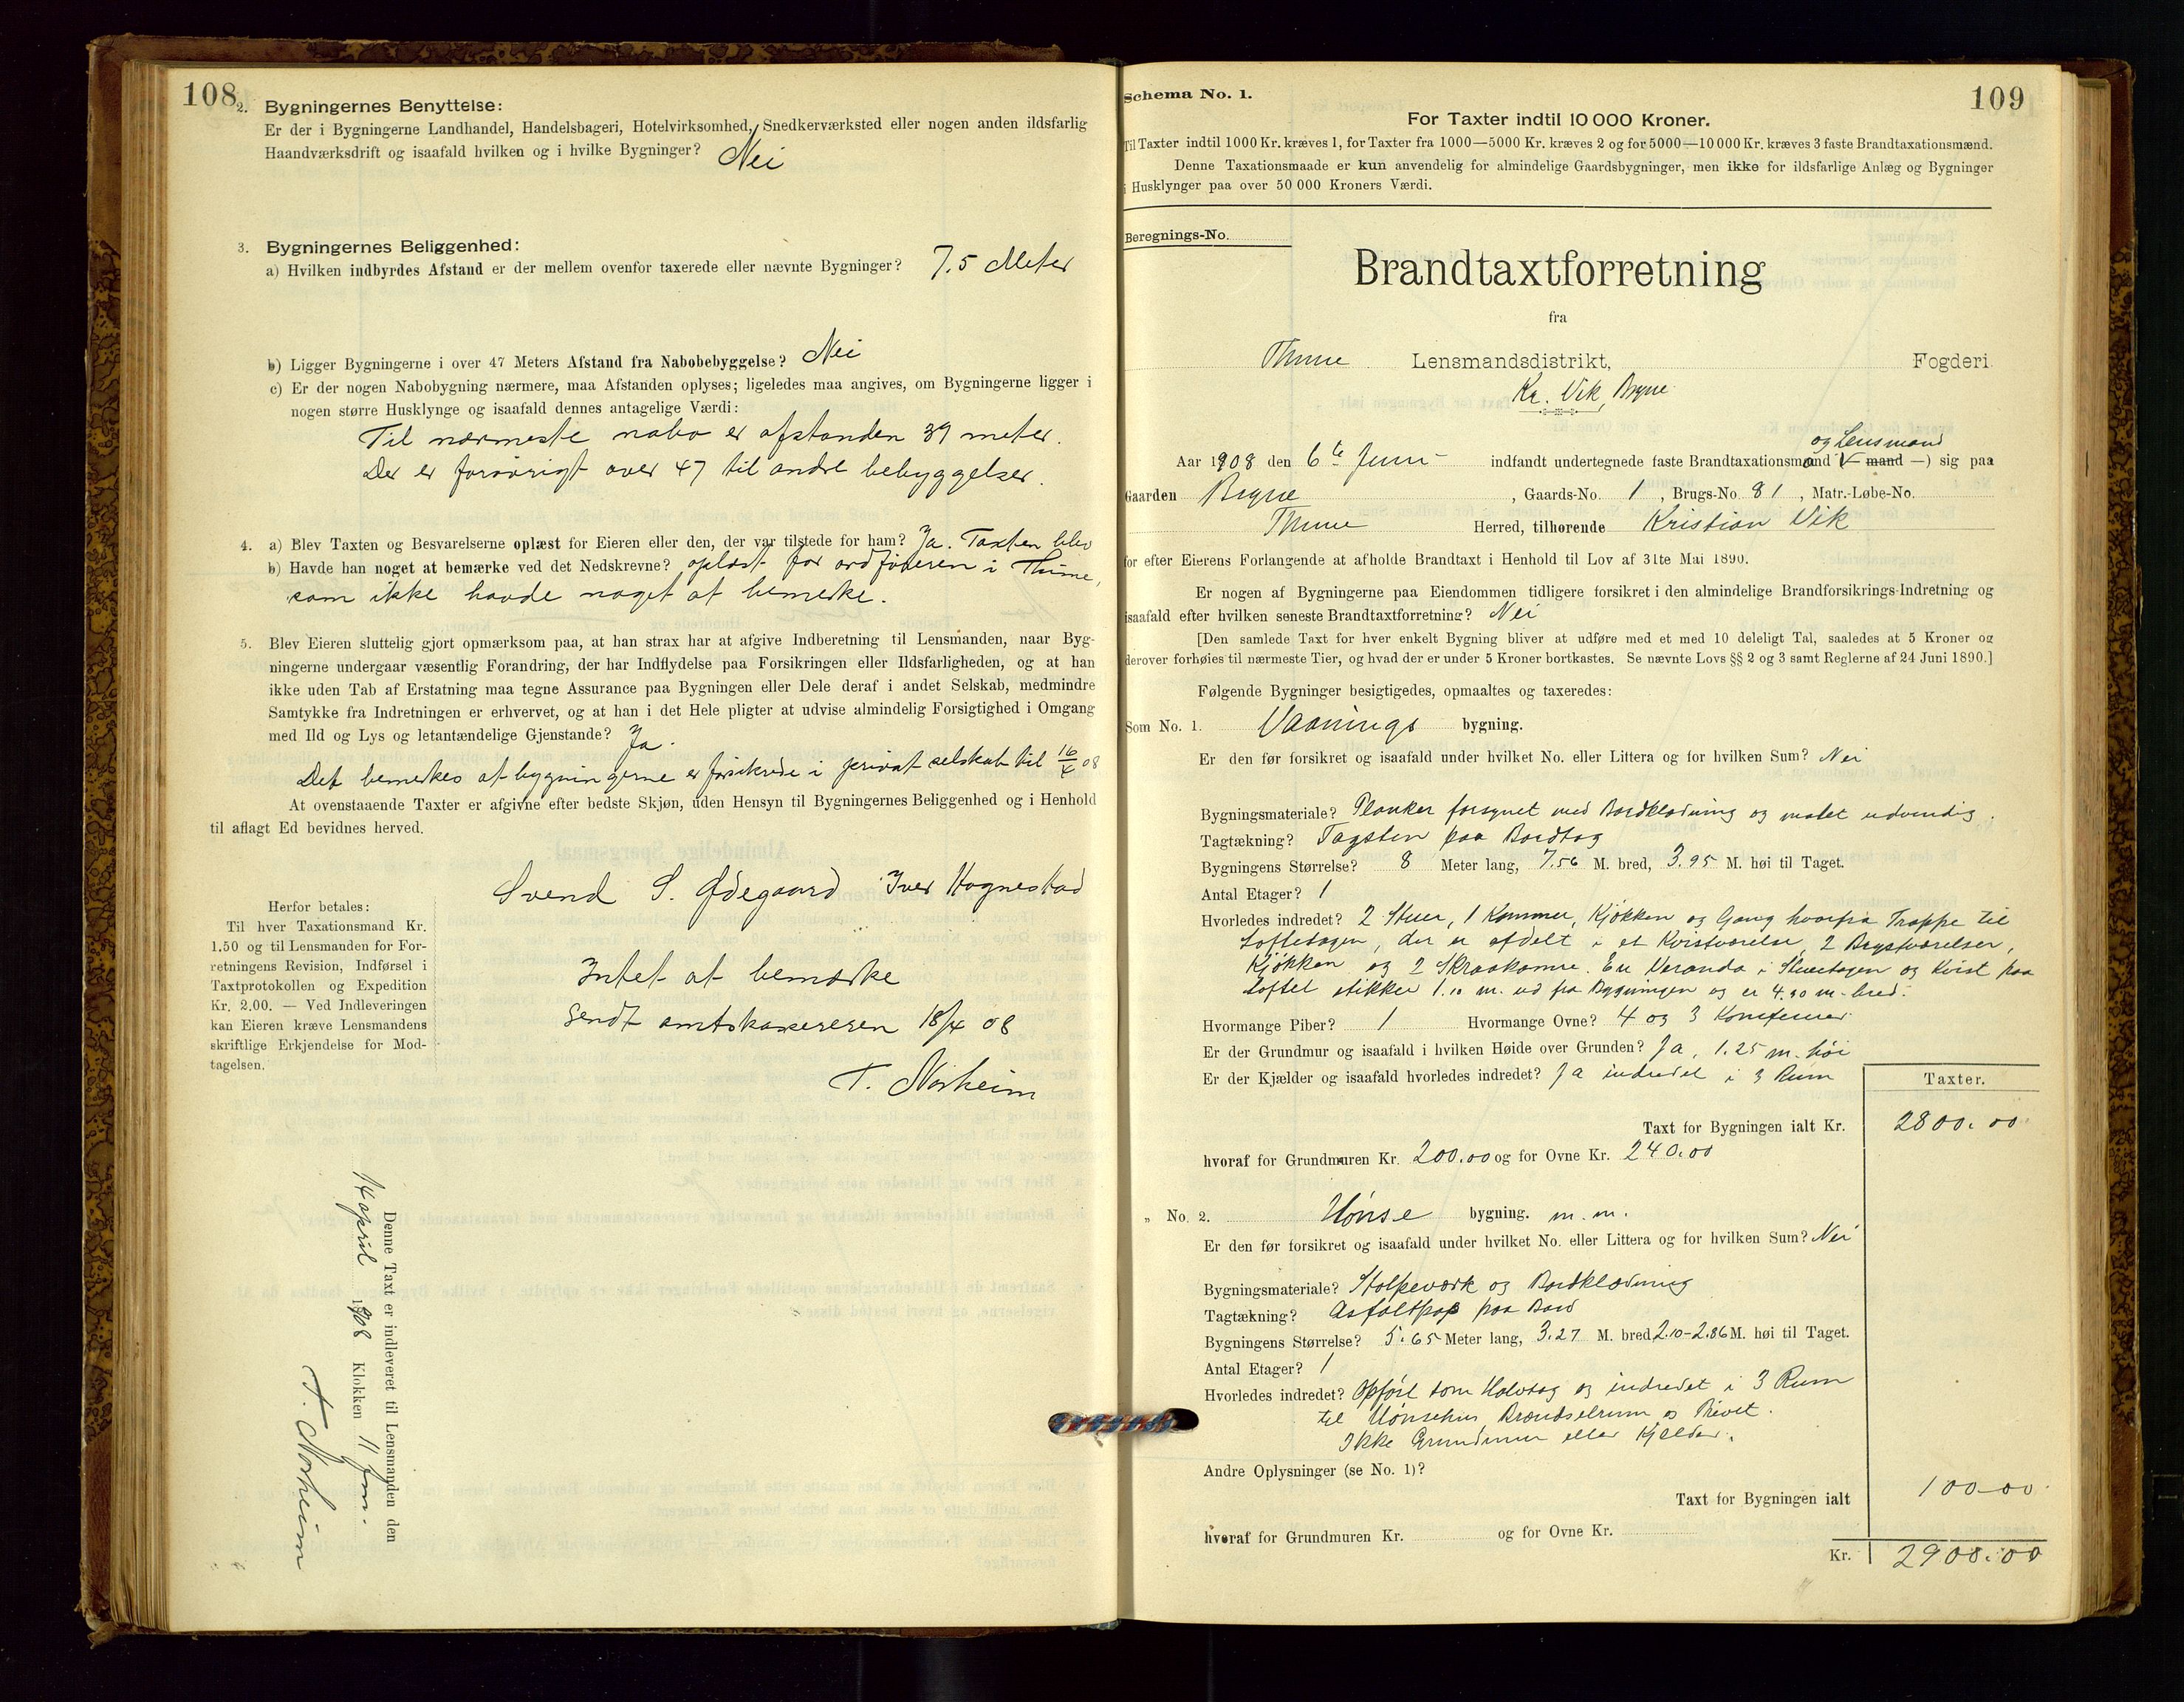 108
2. Bygningernes Benyttelse:
Er der i Bygningerne Landhandel, Handelsbageri, Hotelvirksomhed, Snedkerværksted eller nogen anden ildsfarlig
Haandværksdrift og isaafald hvilken og i hvilke Bygninger? Nei
3. Bygningernes Beliggenhed:
a) Hvilken indbyrdes Afstand er der mellem ovenfor taxerede eller nævnte Bygninger? 7.5 Meter
b) Ligger Bygningerne i over 47 Meters Afstand fra Nabobebyggelse? Nei
c) Er der nogen Nabobygning nærmere, maa Afstanden oplyses; ligeledes maa angives, om Bygningerne ligger i
nogen større Husklynge og isaafald dennes antagelige Værdi:
Til nærmeste nabo er afstanden 39 meter.
Der er forøvrigt over 47 til andre bebyggelser.
4. a) Blev Taxten og Besvarelserne oplæst for Eieren eller den, der var tilstede for ham? Ja. Taxten blev
b) Havde han noget at bemærke ved det Nedskrevne? oplæst for ordføreren i Thime,
som ikke havde noget at bemerke.
5. Blev Eieren sluttelig gjort opmærksom paa, at han strax har at afgive Indberetning til Lensmanden, naar Byg-
ningerne undergaar væsentlig Forandring, der har Indflydelse paa Forsikringen eller Ildsfarligheden, og at han
ikke uden Tab af Erstatning maa tegne Assurance paa Bygningen eller Dele deraf i andet Selskab, medmindre
Samtykke fra Indretningen er erhvervet, og at han i det Hele pligter at udvise almindelig Forsigtighed i Omgang
med Ild og Lys og letantændelige Gjenstande? Ja.
Det bemerkes at bygningerne er forsikrede i privat selskab til 16/4 08
At ovenstaaende Taxter er afgivne efter bedste Skjøn, uden Hensyn til Bygningernes Beliggenhed og i Henhold
til aflagt Ed bevidnes herved.
Svend S. Ødegaard Iver Hognestad
Herfor betales:
Til hver Taxationsmand Kr.
1.50 og til Lensmanden for For-
retningens Revision, Indførsel i
Taxtprotokollen og Expedition
Kr. 2.00. — Ved Indleveringen
kan Eieren kræve Lensmandens
skriftlige Erkjendelse for Mod-
tagelsen.
Intet at bemærke
Sendt amtskassereren 18/4 08
T. Norheim
Denne Taxt er indleveret til Lensmanden den
14 april 1908 Klokken 11 fm.
T. Norheim
109
Schema No. 1.
For Taxter indtil 10 000 Kroner.
Til Taxter indtil 1000 Kr. kræves 1, for Taxter fra 1000—5000 Kr. kræves 2 og for 5000—10 000 Kr. kræves 3 faste Brandtaxationsmænd.
Denne Taxationsmaade er kun anvendelig for almindelige Gaardsbygninger, men ikke for ildsfarlige Anlæg og Bygninger
i Husklynger paa over 50 000 Kroners Værdi.
Beregnings-No.
Brandtaxtforretning
fra
Thime Lensmandsdistrikt, Fogderi
Kr. Vik, Bryne
og Lensmand
Aar 1908 den 6te Juni indfandt undertegnede faste Brandtaxationsmænd (— mænd —) sig paa
Gaarden Bryne, Gaards-No. 1, Brugs-No. 81, Matr.-Løbe-No.
Thime Herred, tilhørende Kristian Vik
for efter Eierens Forlangende at afholde Brandtaxt i Henhold til Lov af 31te Mai 1890.
Er nogen af Bygningerne paa Eiendommen tidligere forsikret i den almindelige Brandforsikrings-Indretning og
isaafald efter hvilken seneste Brandtaxtforretning? Nei
[Den samlede Taxt for hver enkelt Bygning bliver at udføre med et med 10 deleligt Tal, saaledes at 5 Kroner og
derover forhøies til nærmeste Tier, og hvad der er under 5 Kroner bortkastes. Se nævnte Lovs §§ 2 og 3 samt Reglerne af 24 Juni 1890.]
Følgende Bygninger besigtigedes, opmaaltes og taxeredes:
Som No. 1. Vaanings bygning.
Er den før forsikret og isaafald under hvilket No. eller Littera og for hvilken Sum? Nei
Bygningsmateriale? Planker forsynet med Bordklædning og malet udvendig.
Tagtækning? Tagsten paa Bordtag
Bygningens Størrelse? 8 Meter lang, 7.56 M. bred, 3.95 M. høi til Taget.
Antal Etager? 1
Hvorledes indredet? 2 Stuer, 1 Kammer, Kjøkken og Gang hvorfra Trappe til
Loftetagen, der er afdelt i et Kvistværelse, 2 Brystværelser,
Kjøkken og 2 Skraakamre. En Veranda i Stueetagen og Kvist paa
Loftet stikker 1.10 m. ud fra Bygningen og er 4.90 m. bred.
Hvormange Piber? 1 Hvormange Ovne? 4 og 3 Komfurer
Er der Grundmur og isaafald i hvilken Høide over Grunden? Ja, 1.25 m. høi
Er der Kjælder og isaafald hvorledes indredet? Ja indredet i 3 Rum
Taxter.
Taxt for Bygningen ialt Kr. 2800.00
hvoraf for Grundmuren Kr. 200.00 og for Ovne Kr. 240.00
„ No. 2. Hønse bygning. m. m.
Er den før forsikret og isaafald under hvilket No. eller Littera og for hvilken Sum? Nei
Bygningsmateriale? Stolpeværk og Bordklædning
Tagtækning? Asfaltpap paa Bord
Bygningens Størrelse? 5.65 Meter lang, 3.27 M. bred 2.10-2.86 M. høi til Taget.
Antal Etager? 1
Hvorledes indredet? Opført som Halvtag og indredet i 3 Rum
til Hønsehus, Brændselrum og Privet.
Ikke Grundmur eller Kjælder.
Andre Oplysninger (se No. 1)?
Taxt for Bygningen ialt 100.00
hvoraf for Grundmuren Kr. og for Ovne Kr.
Kr. 2900.00